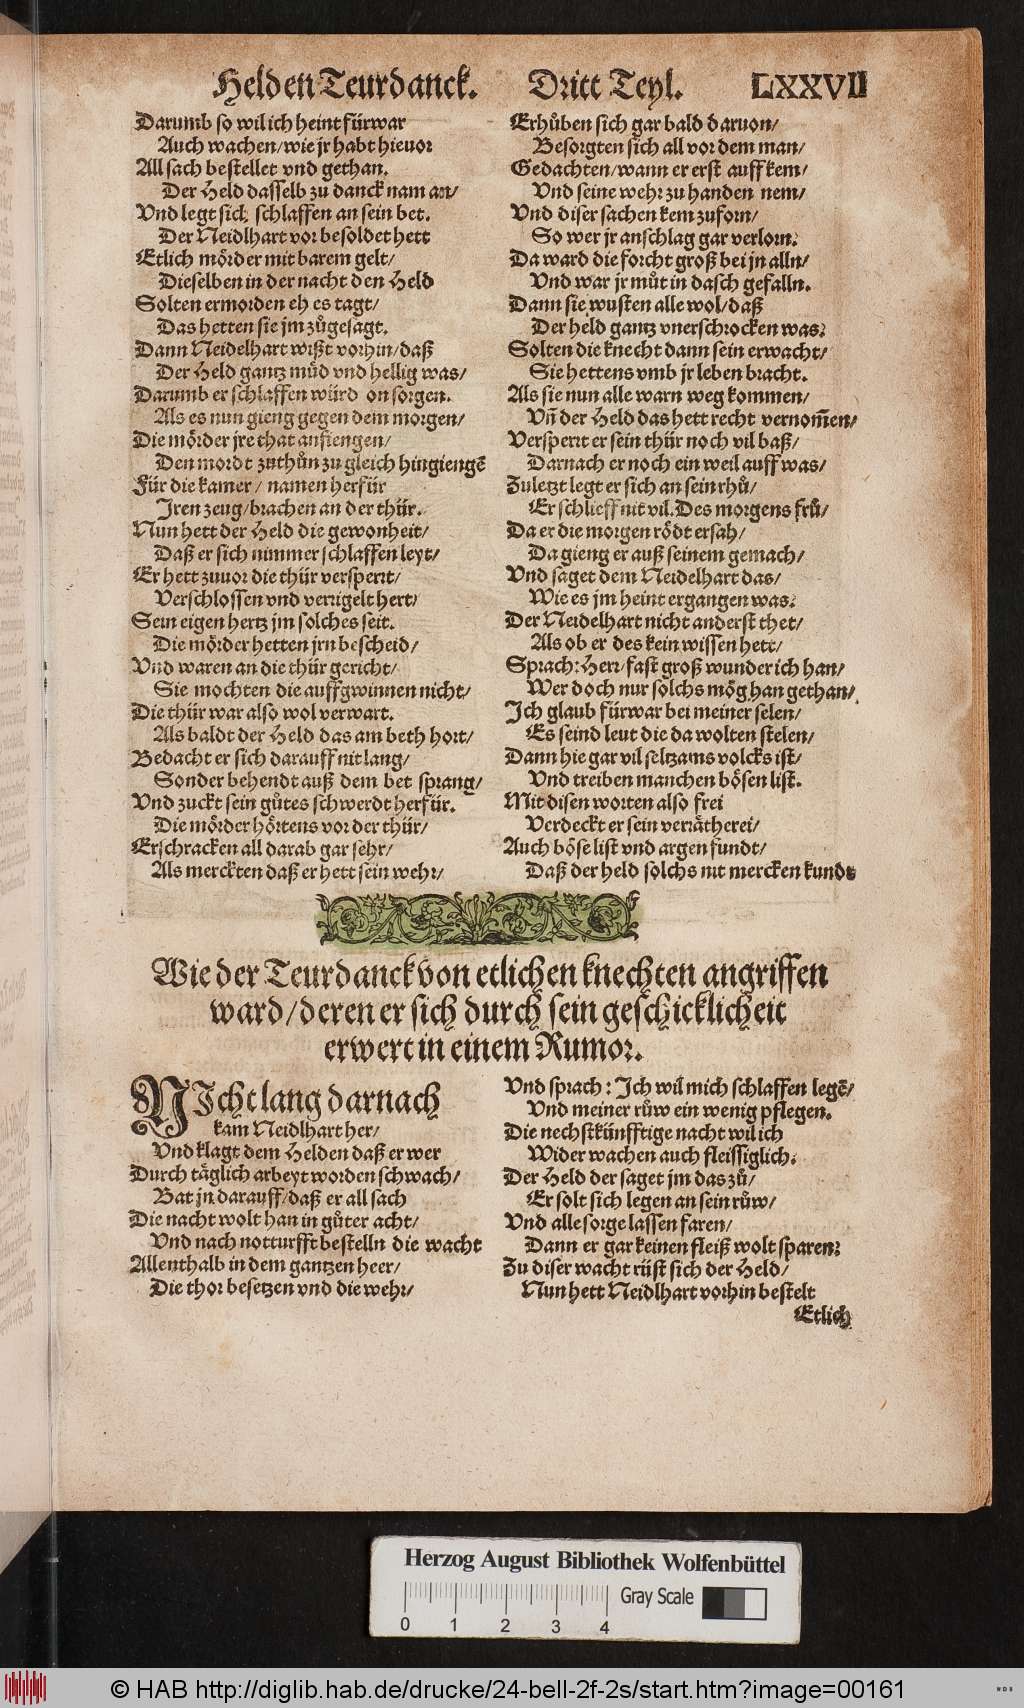 Helden Teurdanck. Dritt Teyl. LXXVII
Darumb so wil ich heint fürwar
Auch wachen/ wie jr habt hieuor
All sach bestellet vnd gethan.
Der Held dasselb zu danck nam an/
Vnd legt sich schlaffen an sein bet.
Der Neidlhart vor besoldet hett
Etlich mörder mit barem gelt/
Dieselben in der nacht den Held
Solten ermorden eh es tagt/
Das hetten sie jm zůgesagt.
Dann Neidelhart wißt vorhin/ daß
Der Held gantz můd vnd hellig was/
Darumb er schlaffen würd on sorgen.
Als es nun gieng gegen dem morgen/
Die mörder jre that anfiengen/
Den mordt zuthůn zu gleich hingiengē
Für die kamer/ namen herfür
Jren zeug/ brachen an der thür.
Nun hett der Held die gewonheit/
Daß er sich nimmer schlaffen leyt/
Er hett zuuor die thür versperrt/
Verschlossen vnd verrigelt hert/
Sein eigen hertz jm solches seit.
Die mörder hetten jrn bescheid/
Vnd waren an die thür gericht/
Sie mochten die auffgwinnen nicht/
Die thür war also wol verwart.
Als baldt der Held das am beth hort/
Bedacht er sich darauff nit lang/
Sonder behendt auß dem bet sprang/
Vnd zuckt sein gůtes schwerdt herfür.
Die mörder hörtens vor der thür/
Erschracken all darab gar sehr/
Als merckten daß er hett sein wehr/
Erhůben sich gar bald daruon/
Besorgten sich all vor dem man/
Gedachten/ wann er erst auff kem/
Vnd seine wehr zu handen nem/
Vnd diser sachen kem zuforn/
So wer jr anschlag gar verlorn.
Da ward die forcht groß bei jn alln/
Vnd war jr můt in dasch gefalln.
Dann sie wusten alle wol/ daß
Der held gantz vnerschrocken was:
Solten die knecht dann sein erwacht/
Sie hettens vmb jr leben bracht.
Als sie nun alle warn weg kommen/
Vñ der Held das hett recht vernom̃en/
Versperrt er sein thür noch vil baß/
Darnach er noch ein weil auff was/
Zuletzt legt er sich an sein rhů/
Er schlieff nit vil. Des morgens frů/
Da er die morgen rödt ersah/
Da gieng er auß seinem gemach/
Vnd saget dem Neidelhart das/
Wie es jm heint ergangen was.
Der Neidelhart nicht anderst thet/
Als ob er des kein wissen hett/
Sprach: Herr/ fast groß wunder ich han/
Wer doch nur solchs mög han gethan/
Jch glaub fürwar bei meiner selen/
Es seind leut die da wolten stelen/
Dann hie gar vil seltzams volcks ist/
Vnd treiben manchen bösen list.
Mit disen worten also frei
Verdeckt er sein verrätherei/
Auch böse list vnd argen fundt/
Daß der held solchs nit mercken kundt
Wie der Teurdanck von etlichen knechten angriffen
ward/ deren er sich durch sein geschicklicheit
erwert in einem Rumor.
NJcht lang darnach
kam Neidlhart her/
Vnd klagt dem Helden daß er wer
Durch täglich arbeyt worden schwach/
Bat jn darauff/ daß er all sach
Die nacht wolt han in gůter acht/
Vnd nach notturfft bestelln die wacht
Allenthalb in dem gantzen heer/
Die thor besetzen vnd die wehr/
Vnd sprach: Jch wil mich schlaffen legē/
Vnd meiner růw ein wenig pflegen.
Die nechstkünfftige nacht wil ich
Wider wachen auch fleissiglich.
Der Held der saget jm das zů/
Er solt sich legen an sein růw/
Vnd alle sorge lassen faren/
Dann er gar keinen fleiß wolt sparen:
Zu diser wacht rüst sich der Held/
Nun hett Neidlhart vorhin bestelt
Etlich
Herzog August Bibliothek Wolfenbüttel
Gray Scale
0 1 2 3 4
© HAB http://diglib.hab.de/drucke/24-bell-2f-2s/start.htm?image=00161